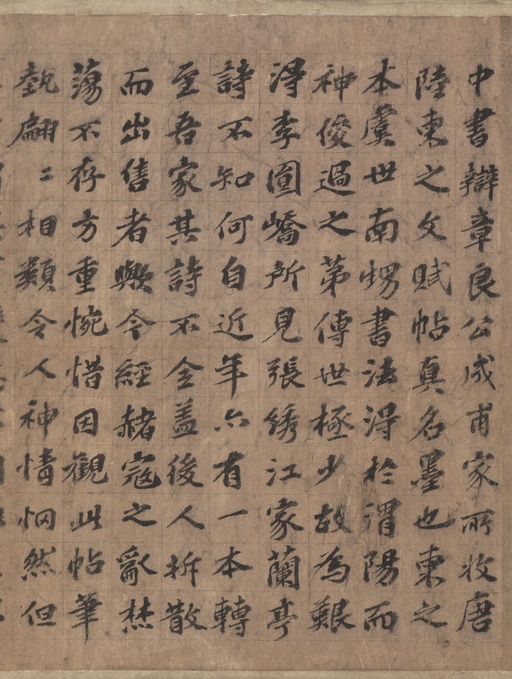 中書辯章良公成甫家所收唐
陸柬之文賦帖真名墨也柬之
本虞世南甥書法淂於渭陽而
神俊過之第傳世極少故為艱
淂李圖嶠所見張綉江家蘭亭
詩不知何自近年亦有一本轉
至吾家其詩不全盖後人拆散
而出售者歟今經赭寇之亂焚
蕩不存方重惋惜因觀此帖筆
埶翩〻相類令人神情惘然但